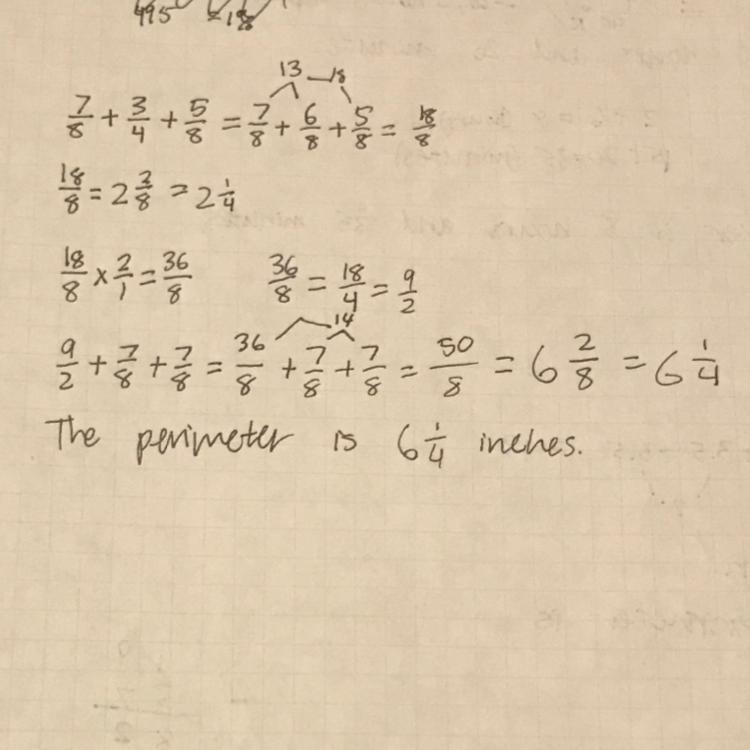 495 18
13 18
7/8 + 3/4 + 5/8 = 7/8 + 6/8 + 5/8 = 18/8
18/8 = 2 2/8 = 2 1/4
18/8 × 2/1 = 36/8 36/8 = 18/4 = 9/2
14
9/2 + 7/8 + 7/8 = 36/8 + 7/8 + 7/8 = 50/8 = 6 2/8 = 6 1/4
The perimeter is 6 1/4 inches.